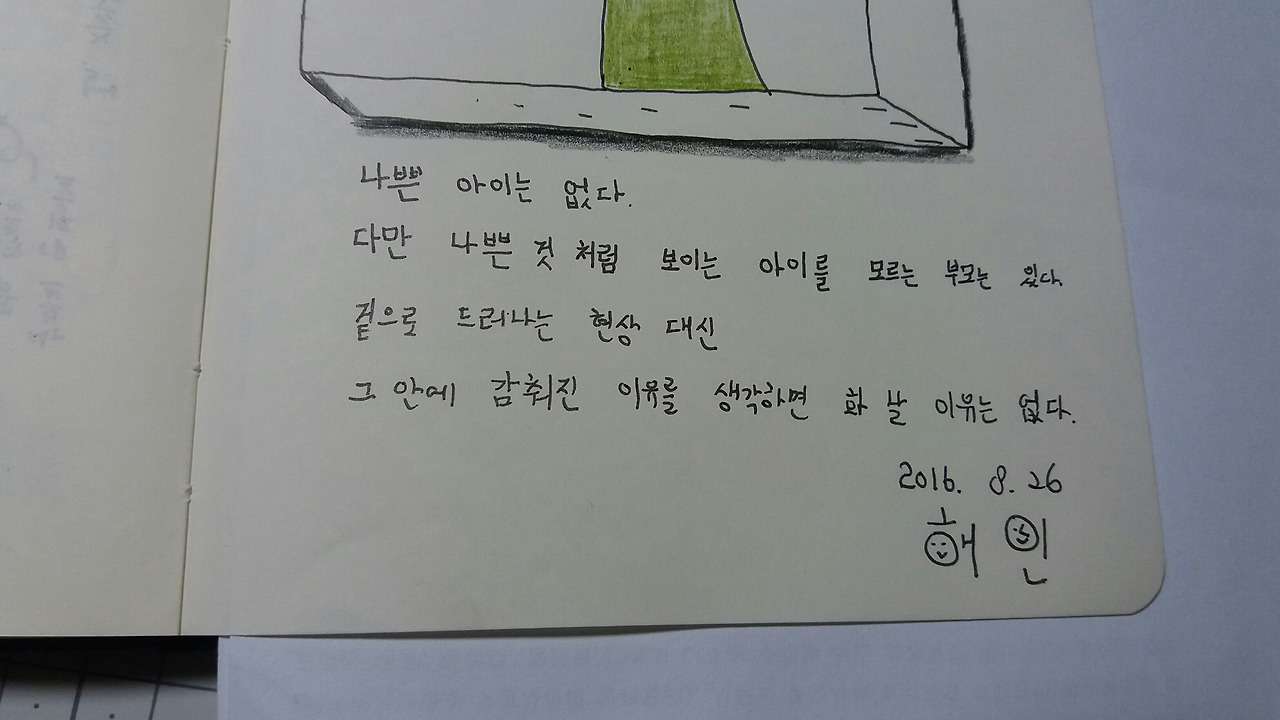 나쁜 아이는 없다.
다만 나쁜 것 처럼 보이는 아이를 모르는 부모는 있다.
겉으로 드러나는 현상 대신
그 안에 감춰진 이유를 생각하면 화 날 이유는 없다.
2016. 8. 26
해인